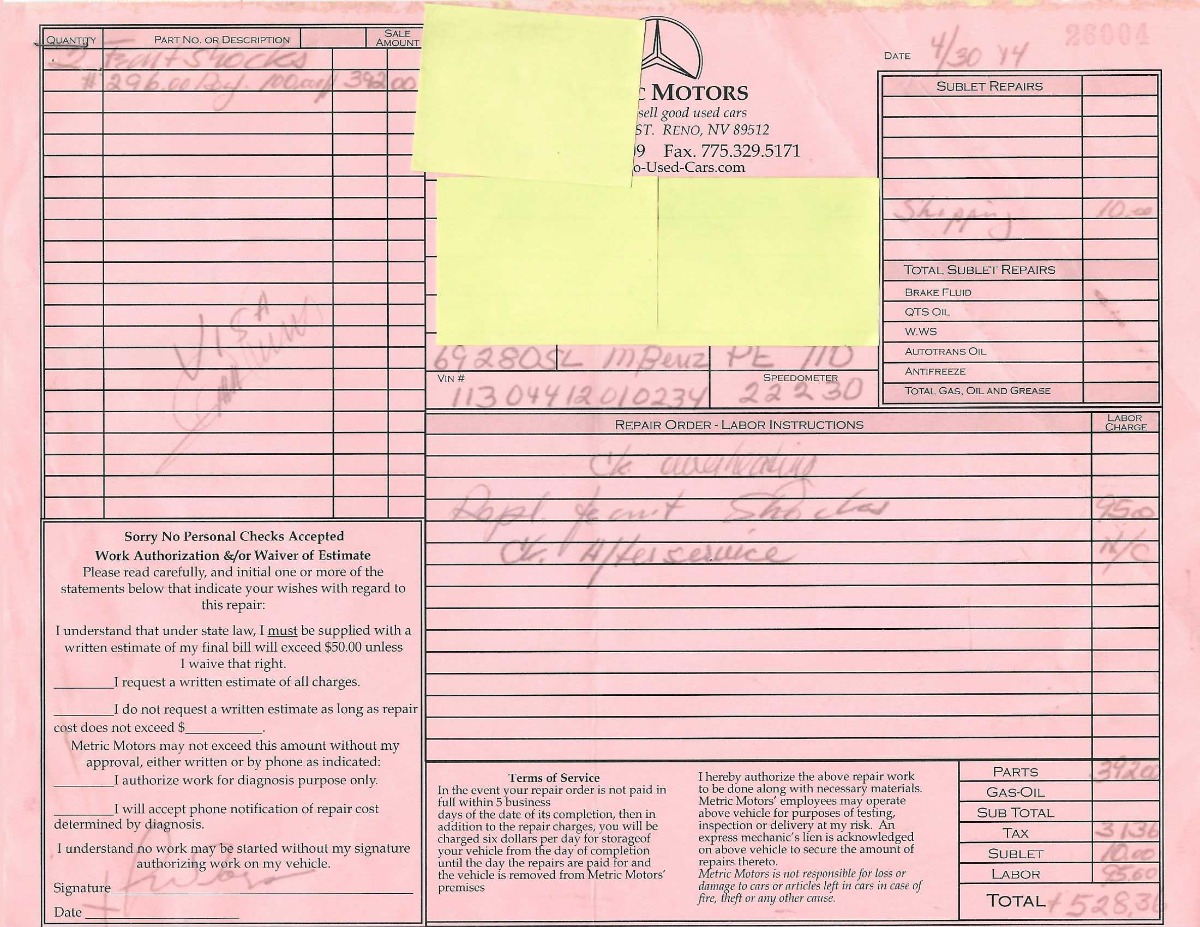 QUANTITY PART NO. OR DESCRIPTION SALE AMOUNT
2 Front Shocks
392.00
VISA
MOTORS
sell good used cars
ST. RENO, NV 89512
9 Fax. 775.329.5171
o-Used-Cars.com
DATE 4/30 14
26004
SUBLET REPAIRS
Shipping 10.00
TOTAL SUBLET REPAIRS
BRAKE FLUID
QTS OIL
W.WS
AUTOTRANS OIL
ANTIFREEZE
TOTAL GAS, OIL AND GREASE
69 280SL MBenz PE 110
VIN # SPEEDOMETER
11304412010234 22230
REPAIR ORDER - LABOR INSTRUCTIONS LABOR CHARGE
Ck
Repl. front Shocks 95.00
Ck. Afterservice N/C
Sorry No Personal Checks Accepted
Work Authorization &/or Waiver of Estimate
Please read carefully, and initial one or more of the
statements below that indicate your wishes with regard to
this repair:
I understand that under state law, I must be supplied with a
written estimate of my final bill will exceed $50.00 unless
I waive that right.
________I request a written estimate of all charges.
________I do not request a written estimate as long as repair
cost does not exceed $__________.
Metric Motors may not exceed this amount without my
approval, either written or by phone as indicated:
________I authorize work for diagnosis purpose only.
________I will accept phone notification of repair cost
determined by diagnosis.
I understand no work may be started without my signature
authorizing work on my vehicle.
Signature
Date
Terms of Service
In the event your repair order is not paid in
full within 5 business
days of the date of its completion, then in
addition to the repair charges, you will be
charged six dollars per day for storageof
your vehicle from the day of completion
until the day the repairs are paid for and
the vehicle is removed from Metric Motors'
premises
I hereby authorize the above repair work
to be done along with necessary materials.
Metric Motors' employees may operate
above vehicle for purposes of testing,
inspection or delivery at my risk. An
express mechanic's lien is acknowledged
on above vehicle to secure the amount of
repairs thereto.
Metric Motors is not responsible for loss or
damage to cars or articles left in cars in case of
fire, theft or any other cause.
PARTS 392.00
GAS-OIL
SUB TOTAL
TAX 31.36
SUBLET 10.00
LABOR 95.00
TOTAL 528.36